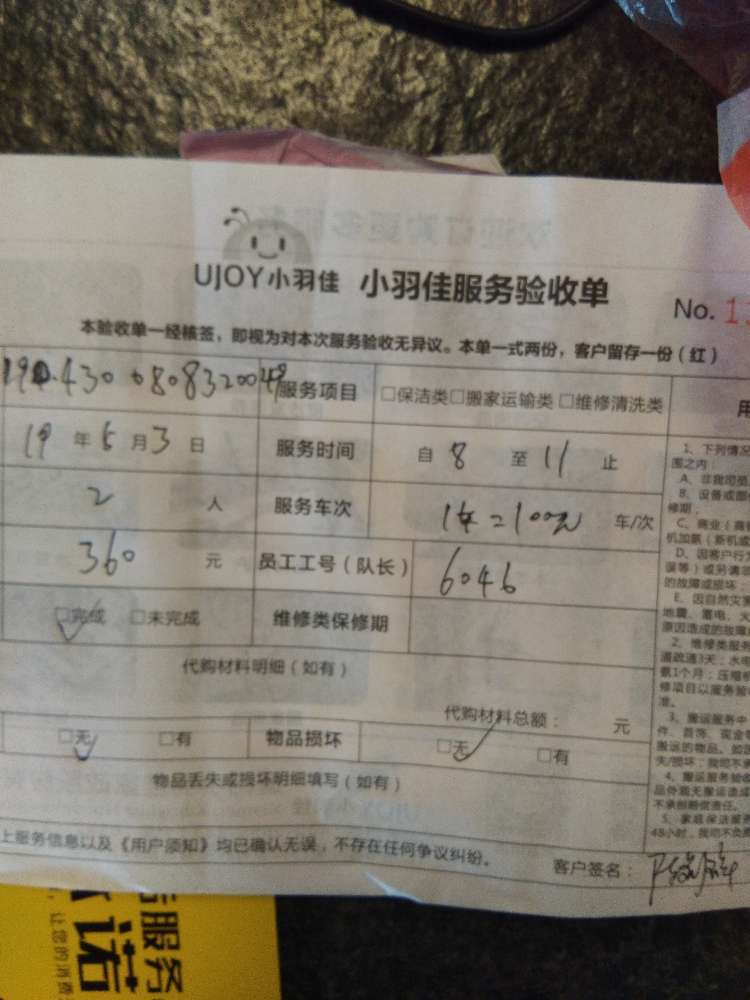 UJOY小羽佳 小羽佳服务验收单 No. 1
本验收单一经核签，即视为对本次服务验收无异议。本单一式两份，客户留存一份（红）
服务项目 □保洁类□搬家运输类 □维修清洗类 用
19 年 5 月 3 日 服务时间 自 8 至 11 止
2 人 服务车次 车/次
360 元 员工工号（队长） 6046
□完成 □未完成 维修类保修期
代购材料明细（如有）
代购材料总额： 元
□无 □有 物品损坏 □无 □有
物品丢失或损坏明细填写（如有）
上服务信息以及《用户须知》均已确认无误，不存在任何争议纠纷。
客户签名：
1、下列情况
围之内：
A、非我司
B、设备或
修期；
C、商业（商
机加氨（新机或
D、因客户行
误等）或另请
的故障或损坏；
E、因自然灾害
地震、雷电、火
原因造成的故障
2、维修类服务
道疏通3天；水
氨1个月；压缩
修项目以服务验
准。
3、搬运服务中
件、首饰、现金
搬运的物品。如
失/损坏，我司不承
4、搬运服务验收
品外观无搬运造成
不承担赔偿责任。
5、家庭保洁服务
48小时，我司不负
诺
服务
让您的消费